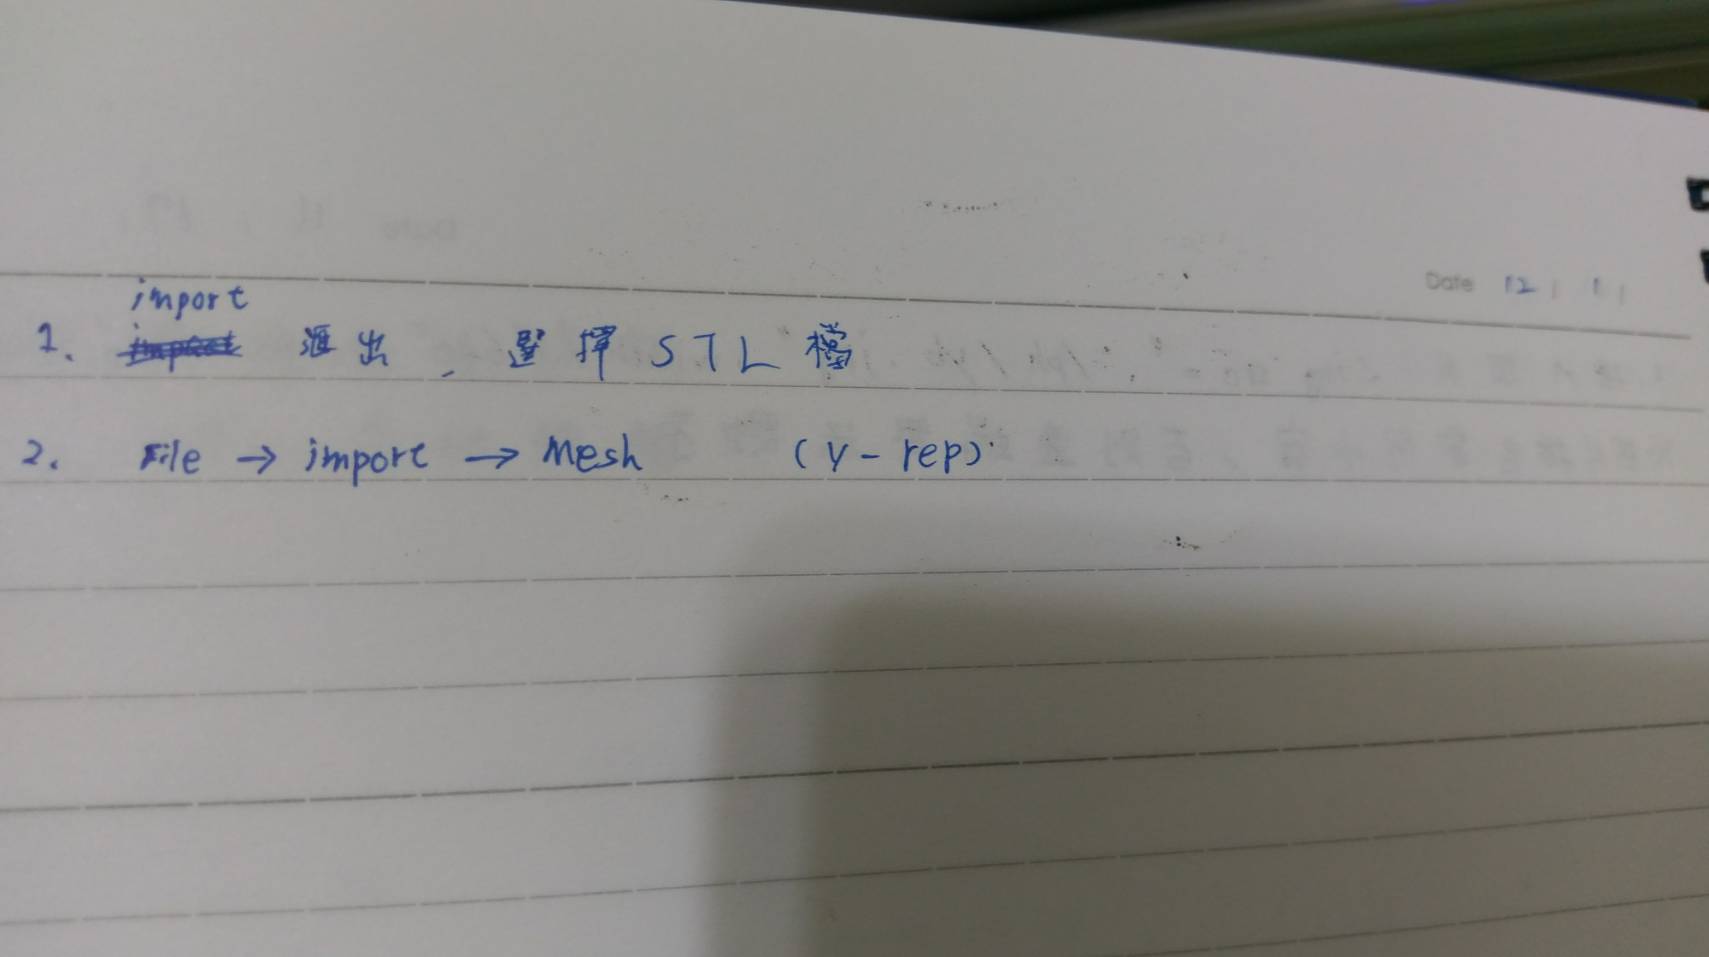 Date 12 / 1 /
import
1. 匯出, 選擇 STL檔
2. File → import → Mesh (V-rep)